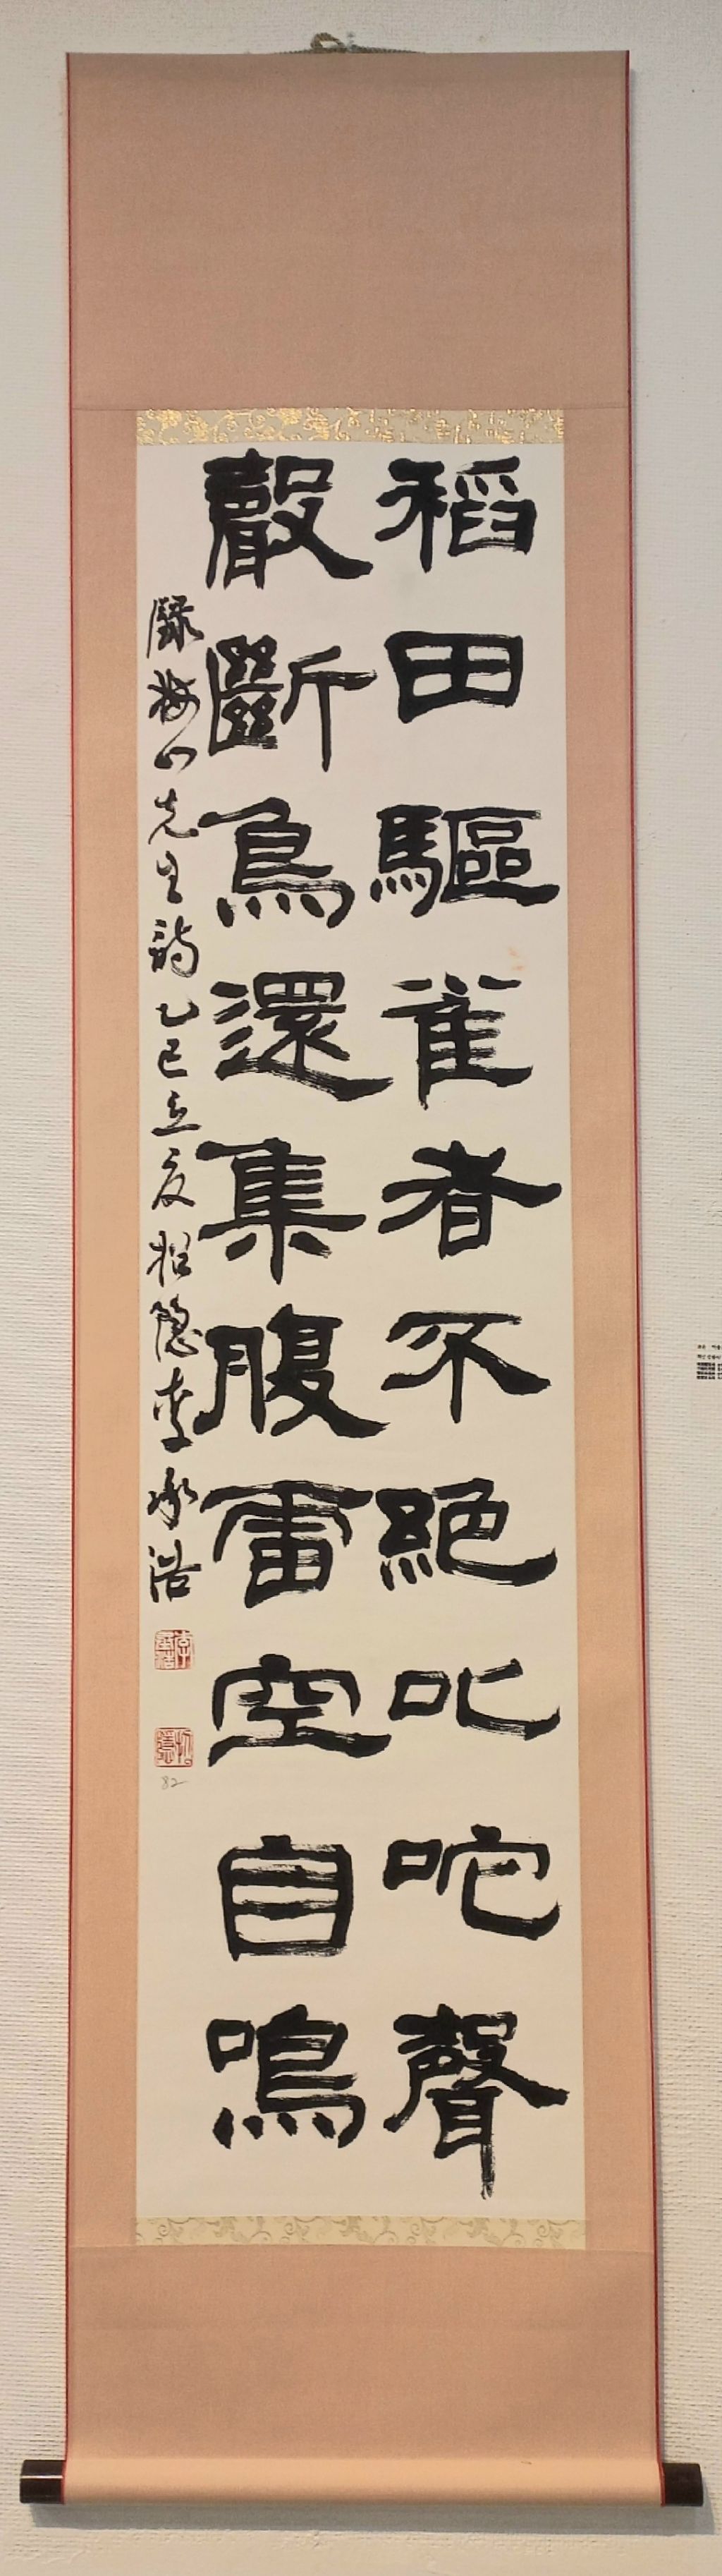 稻田驅雀者不絕叱咤聲
聲斷鳥還集腹雷空自鳴
錄梅山先生詩乙巳立夏招隱李承浩
82